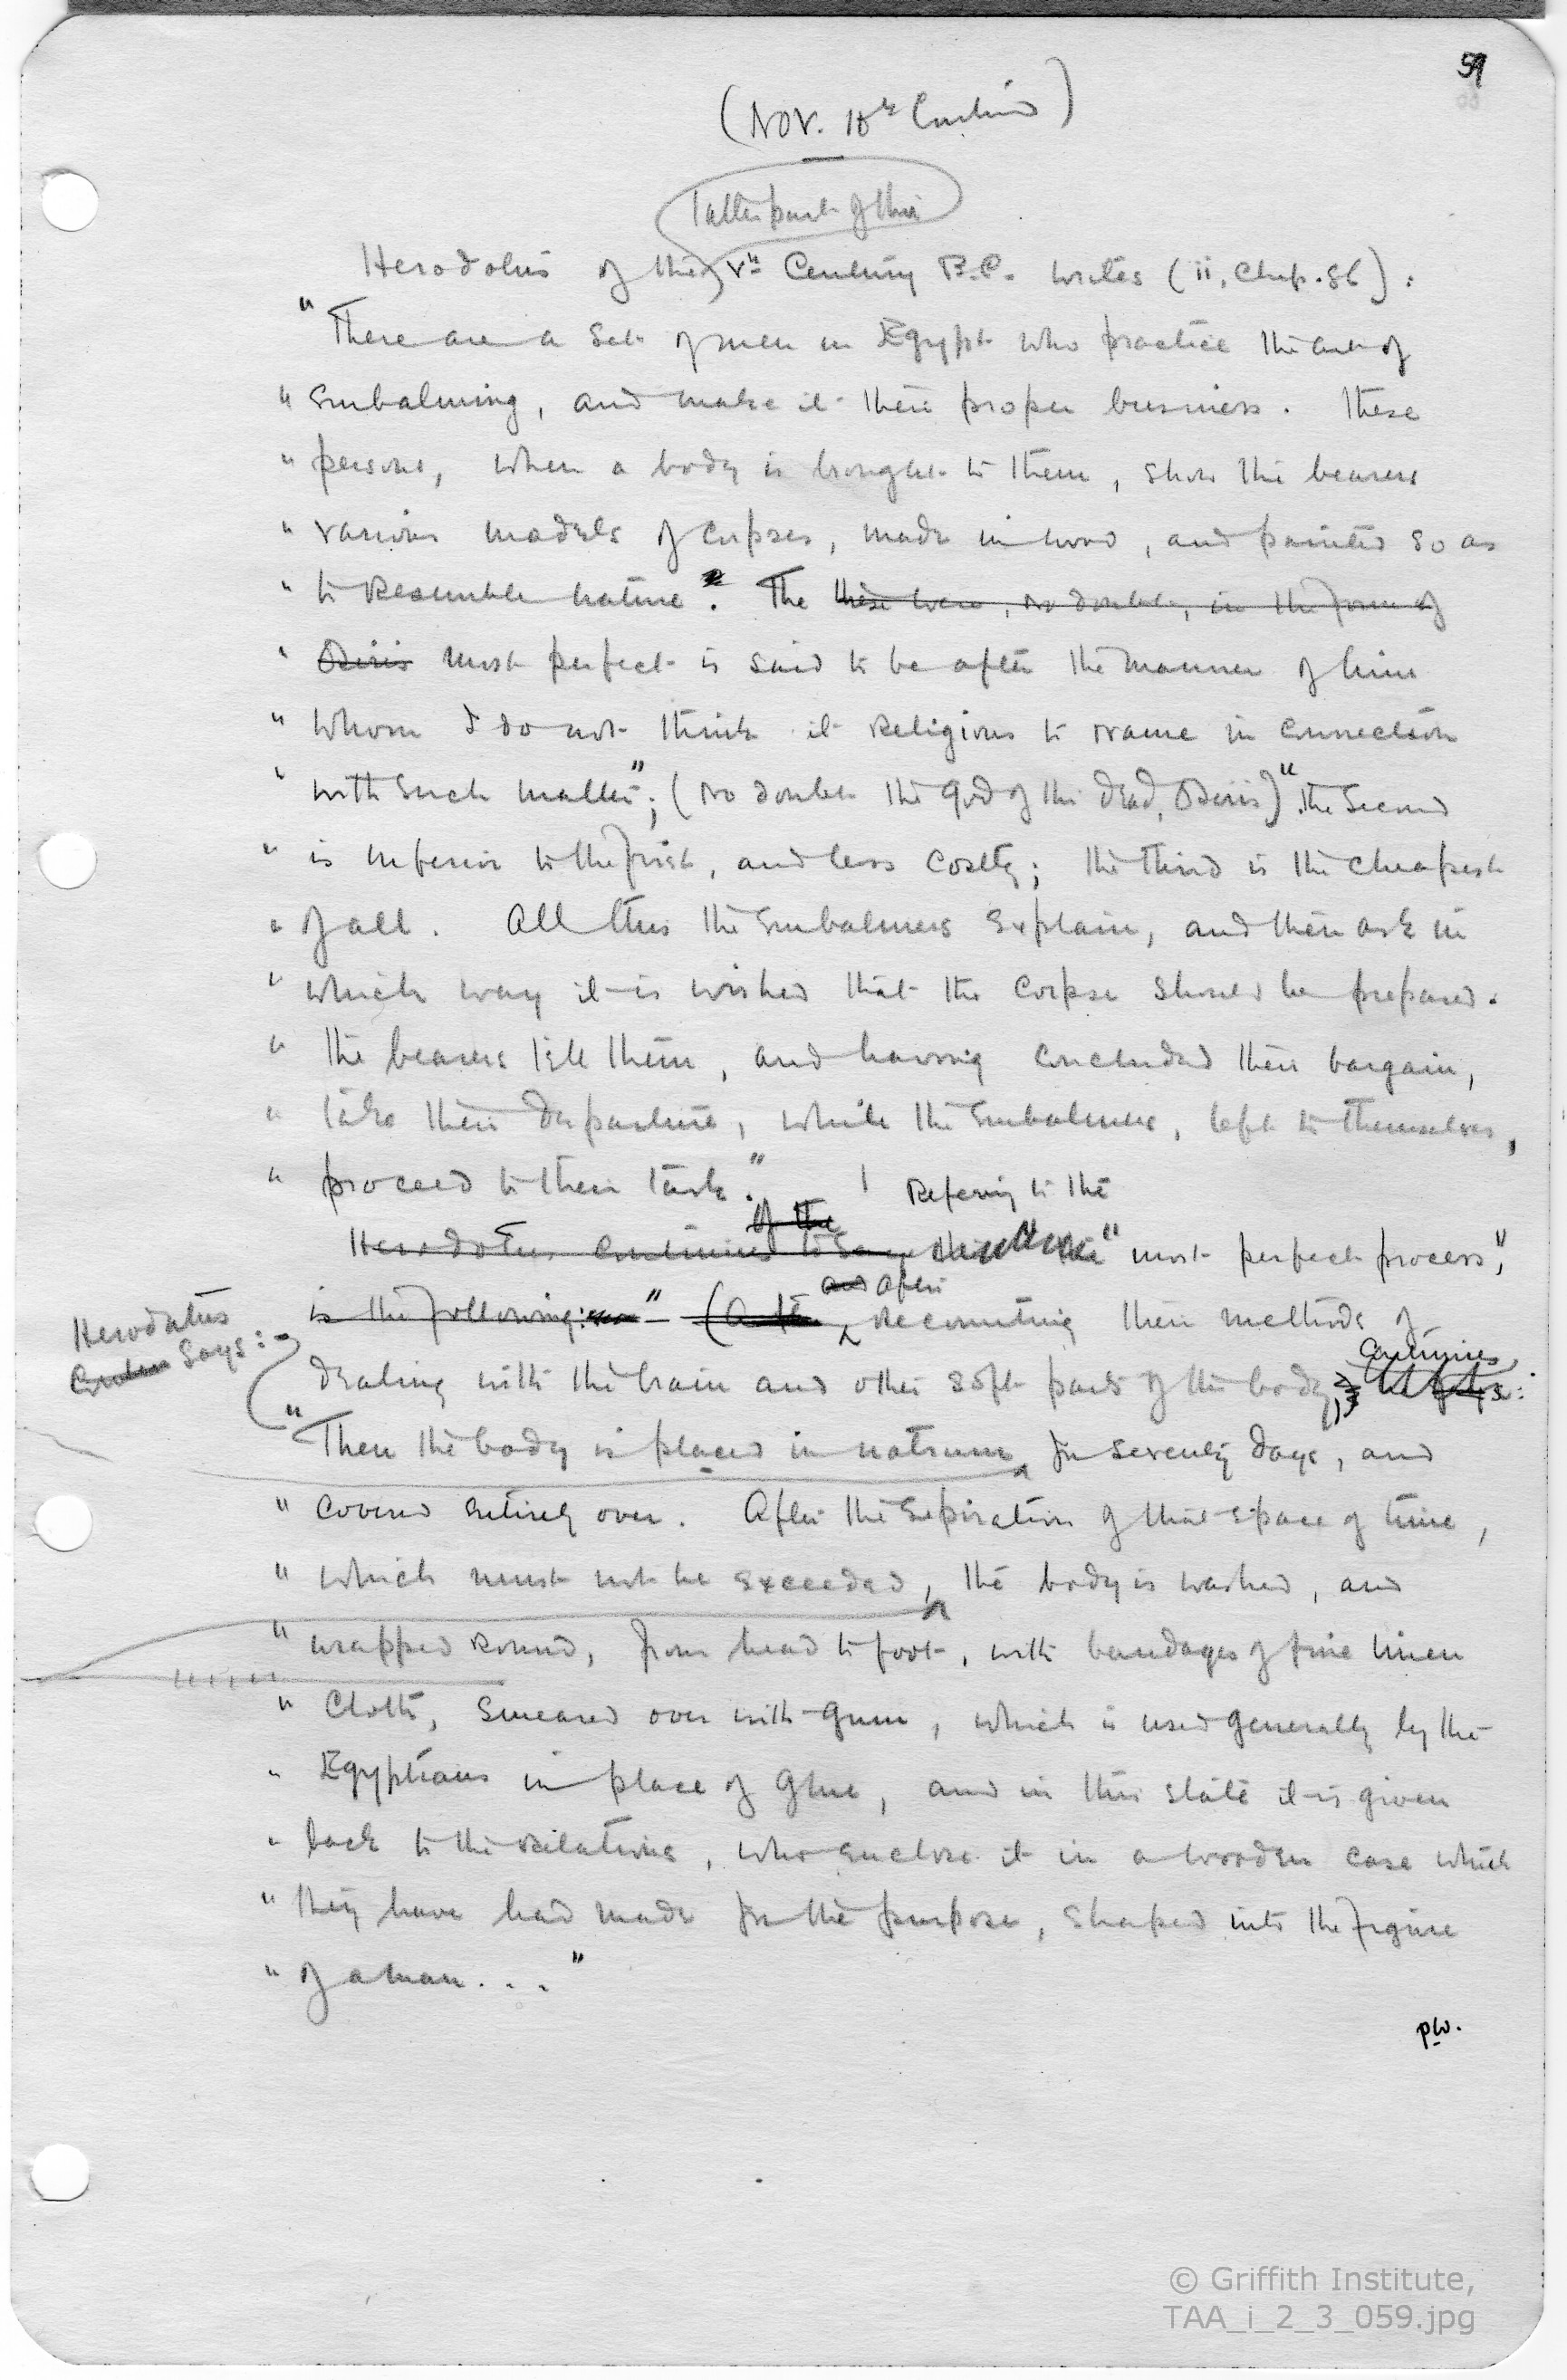 59
(Nov. 18th Contind)
latter part of the
Herodotus of the Vth Century B.C. writes (ii, Chap. 86):
"There are a set of men in Egypt who practice the art of
" embalming, and make it their proper business. These
" persons, when a body is brought to them, show the bearers
" various models of corpses, made in wood, and painted so as
" to resemble nature". The these were, no doubt, in the form of
" Osiris most perfect is said to be after the manner of him
" whom I do not think it religious to name in connection
" with such matter"; (no doubt the god of the dead, Osiris)". The second
" is inferior to the first, and less costly; the third is the cheapest
" of all. All this the embalmers explain, and then ask in
" which way it is wished that the corpse should be prepared.
" The bearers tell them, and having concluded their bargain,
" take their departure, while the embalmers, left to themselves,
" proceed to their task."
Refering to the
of the
Herodotus continues to say "most perfect process",
and after
is the following:" recounting their methods of
Herodatus
says:
continues
dealing with the brain and other soft parts of the body,
"Then the body is placed in natrum for seventy days, and
" covered entirely over. After the expiration of that space of time,
" which must not be exceeded, the body is washed, and
" wrapped round, from head to foot, with bandages of fine linen
" cloth, smeared over with gum, which is used generally by the
" Egyptians in place of glue, and in this state it is given
" back to the relations, who enclose it in a wooden case which
" they have had made for the purpose, shaped into the figure
" of a man . . . "
© Griffith Institute,
TAA_i_2_3_059.jpg